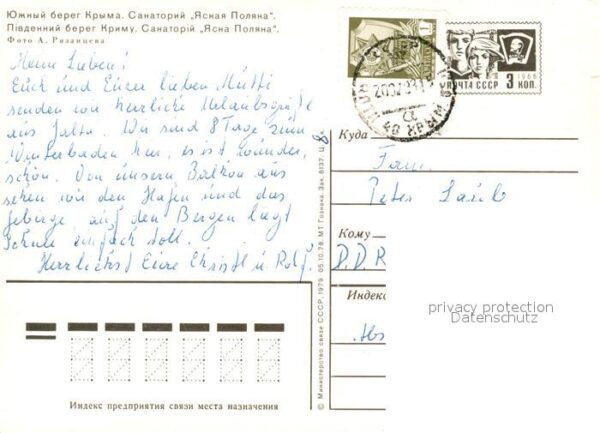 Южный берег Крыма. Санаторий „Ясная Поляна“.
Південний берег Криму. Санаторій „Ясна Поляна“.
Фото А. Рязанцева
Meine Lieben!
Euch und Eurer lieben Mutti
senden wir herzliche Urlaubsgrüße
aus Jalta. Wir sind 8 Tage zum
Winterbaden hier, es ist wunder-
schön. Von unserm Balkon aus
sehen wir den Hafen und das
Gebirge, auf den Bergen liegt
Schnee einfach toll.
Herzlichst Eure Christl u. Rolf.
ПОЧТА СССР 3 КОП.
1966
КРЫМ
Куда
Fam.
Peter
Кому
D.D.R
Индекс
privacy protection
Datenschutz
Abs
© Министерство связи СССР, 1979. 05.10.78. МТ Гознака. Зак. 8137. Ц.
Индекс предприятия связи места назначения